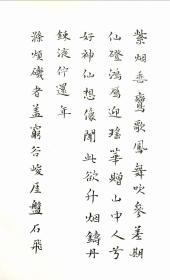 紫烟岳鸞歌鳳舞吹參差期
仙磴鴻鴈迎瑤華贈山中人兮
好神仙想像聞此欲升烟鑄丹
鍊液佇還年
滌煩磯者蓋窮谷峻崖盤石飛